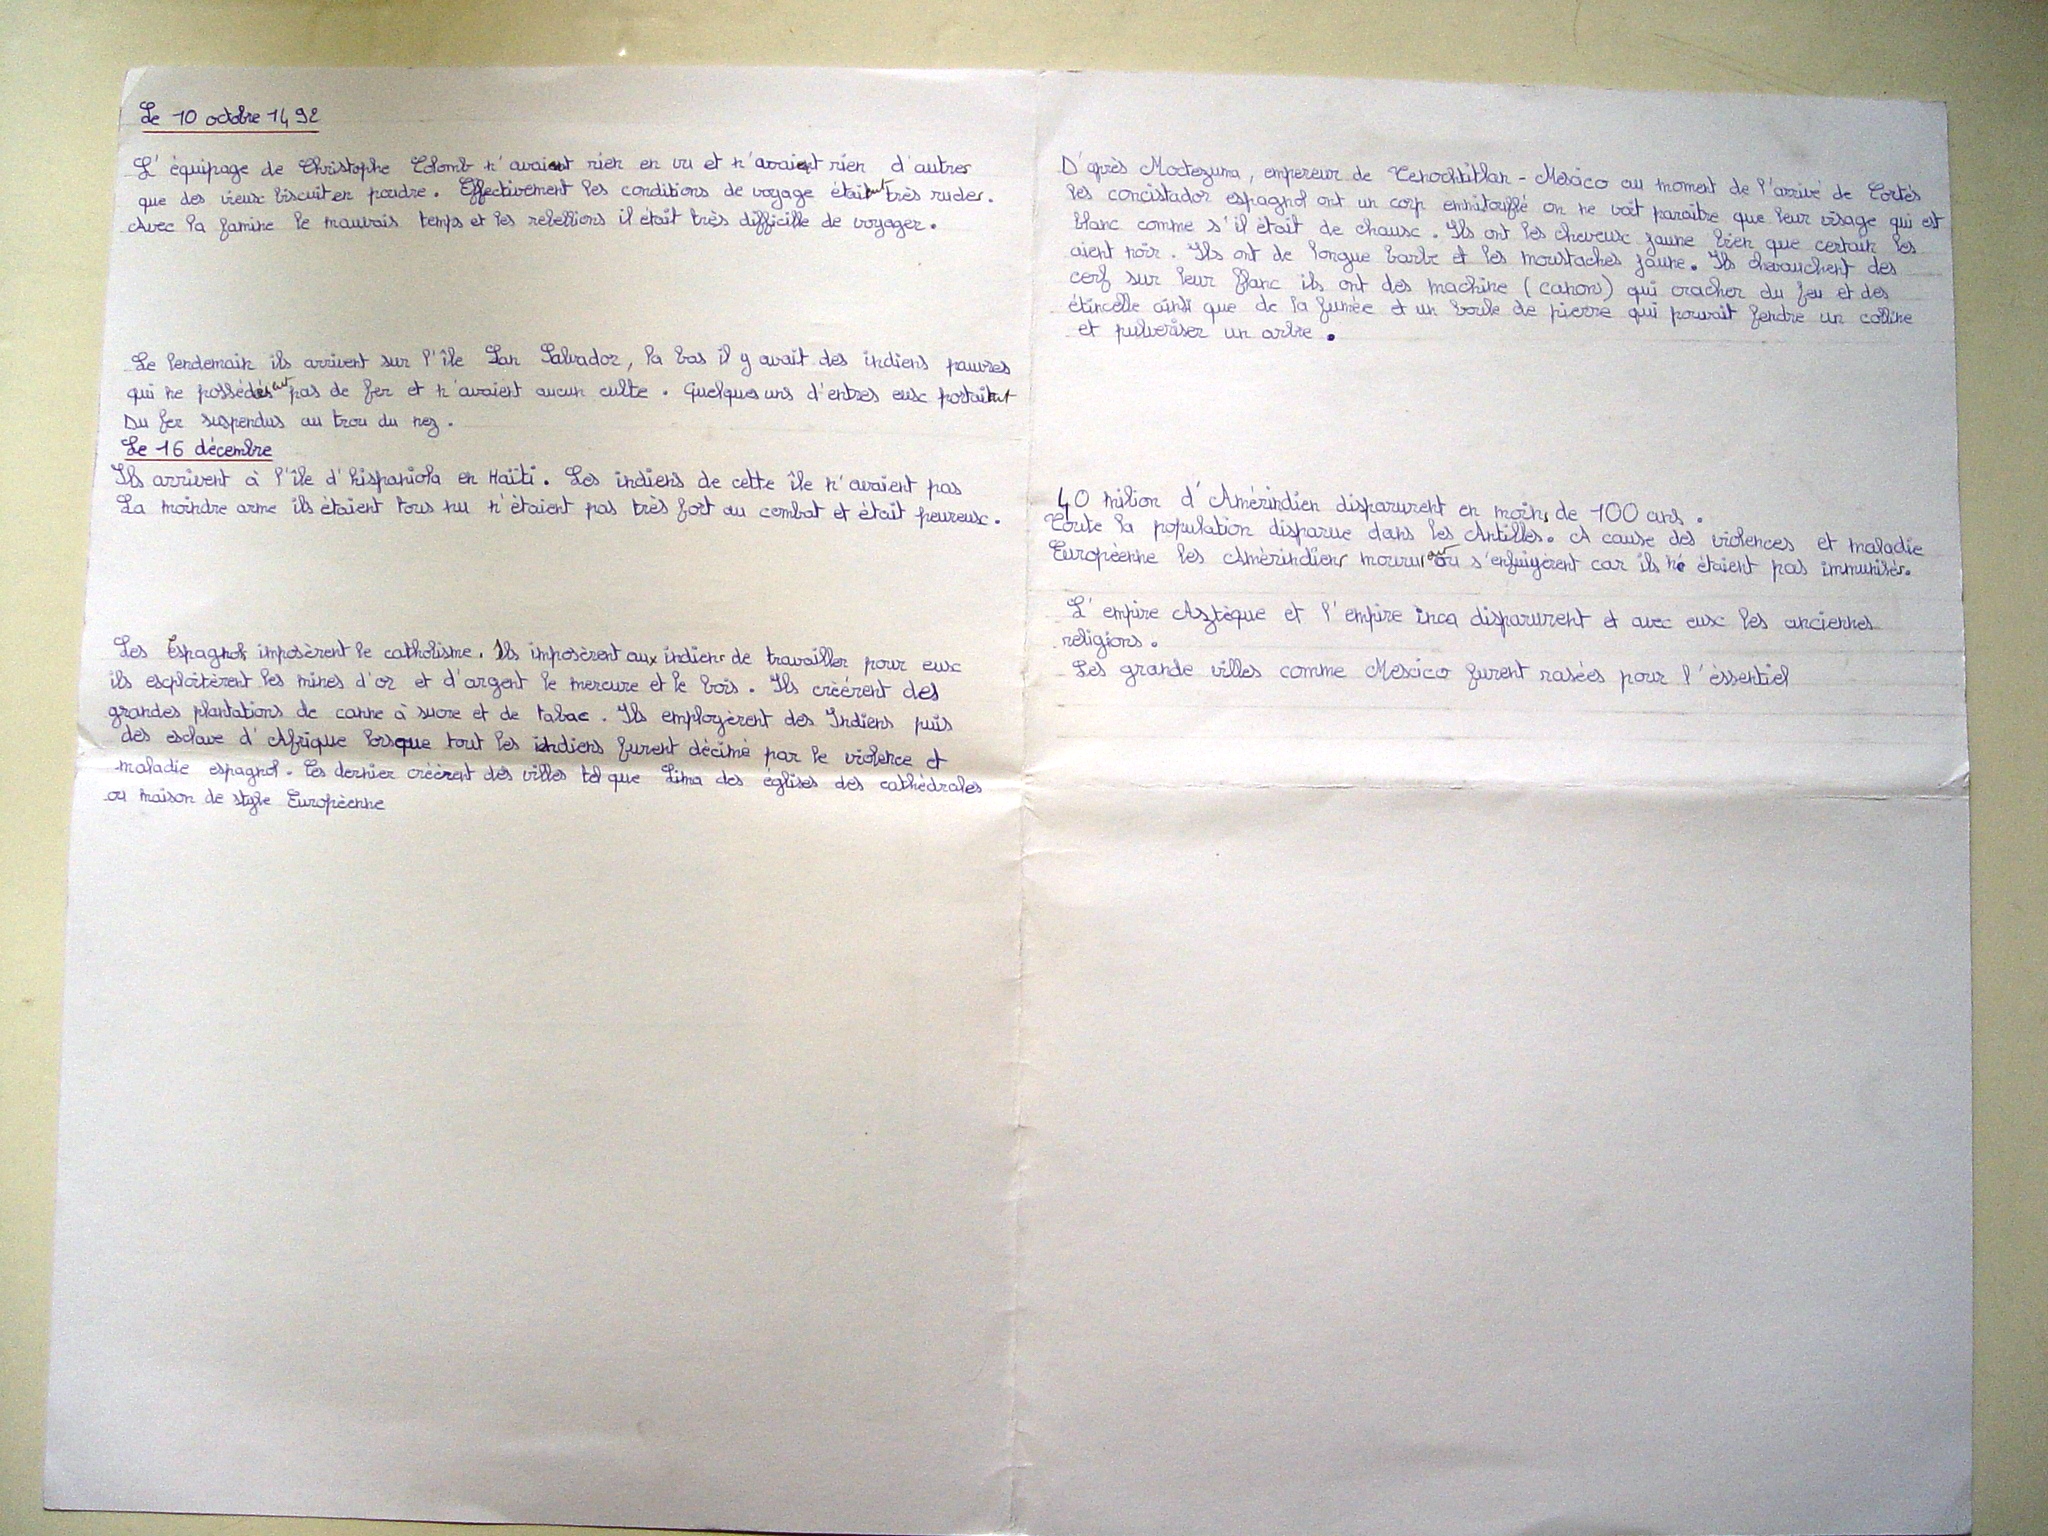 Le 10 octobre 1492
L'équipage de Christophe Colomb n'avaient rien en vu et n'avaient rien d'autres
que des vieux biscuit en poudre. Effectivement les conditions de voyage étaient très rudes.
Avec la famine le mauvais temps et les rebellions il était très difficille de voyager.
Le lendemain ils arrivent sur l'île San Salvador, la bas il y avait des indiens pauvres
qui ne possédaient pas de fer et n'avaient aucun culte. Quelques uns d'entres eux portaient
Du fer suspendus au trou du nez.
Le 16 décembre
Ils arrivent à l'île d'hispaniola en Haïti. Les indiens de cette île n'avaient pas
La moindre arme ils étaient tous nu n'étaient pas très fort au combat et était peureux.
Les Espagnols imposèrent le catholisme. Ils imposèrent aux indiens de travailler pour eux
ils exploitèrent les mines d'or et d'argent le mercure et le bois. Ils créèrent des
grandes plantations de canne à sucre et de tabac. Ils employèrent des Indiens puis
des esclave d'Afrique lorsque tout les indiens furent décimé par le violence et
maladie espagnol. Ces dernier créèrent des villes tel que Lima des églises des cathédrales
ou maison de style Européenne
D'après Moctezuma, empereur de Tenochtitlan - Mexico au moment de l'arrivé de Cortés
les concistador espagnol ont un corp emmitouflé on ne voit paraitre que leur visage qui est
blanc comme s'il était de chaux. Ils ont les cheveux jaune bien que certain les
aient noir. Ils ont de longue barbe et les moustaches jaune. Ils chevauchent des
cerf sur leur flanc ils ont des machine (canon) qui cracher du feu et des
étincelle ainsi que de la fumée et un boule de pierre qui pouvait fendre un colline
et pulveriser un arbre.
40 milion d'Amérindien disparurent en moins de 100 ans.
Toute la population disparue dans les Antilles. A cause des violences et maladie
Européenne les Amérindiens moururent ou s'enfuigèrent car ils n'étaient pas immunisés.
L'empire Aztèque et l'empire inca disparurent et avec eux les anciennes
religions.
Les grande villes comme Mexico furent rasées pour l'éssentiel